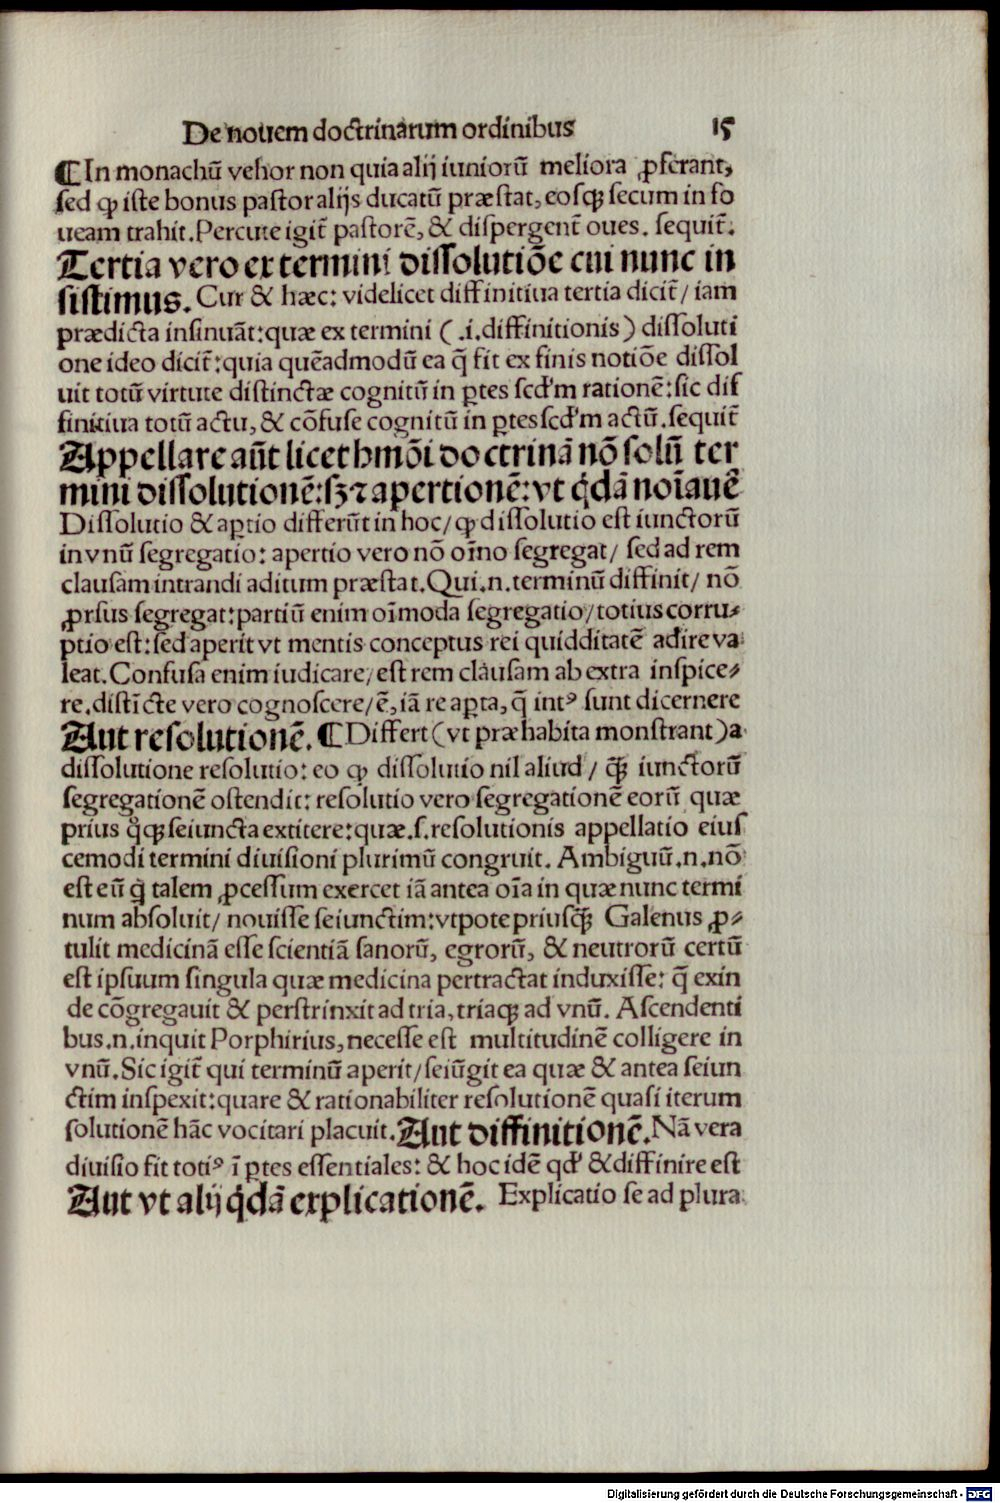 De nouem doctrinarum ordinibus 15
¶In monachū vehor non quia alij iuniorū meliora ꝓferant,
sed ꝙ iste bonus pastor alijs ducatū præstat, eosqꝫ secum in fo
ueam trahit. Percute igit̄ pastorē, & dispergent̄ oues. sequit̄.
Tertia vero ex termini dissolutiōe cui nunc in
sistimus. Cur & hæc: videlicet diffinitiua tertia dicit̄/ iam
prædicta insinuāt: quæ ex termini (.i. diffinitionis) dissoluti
one ideo dicit̄: quia quēadmodū ea q̄ fit ex finis notiōe dissol
uit totū virtute distinctæ cognitū in ꝑtes scd'm rationē: sic dif
finitiua totū actu, & cōfuse cognitū in ꝑtes scd'm actū. sequit̄
Appellare aūt licet hmōi doctrinā nō solū ter
mini dissolutionē: sꝫ ⁊ apertionē: vt q̇dā noīauē
Dissolutio & aꝑtio differūt in hoc/ ꝙ dissolutio est iunctorū
in vnū segregatio: apertio vero nō oīno segregat/ sed ad rem
clausam intrandi aditum præstat. Qui .n. terminū diffinit/ nō
ꝓrsus segregat: partiū enim oīmoda segregatio/ totius corru⸗
ptio est: sed aperit vt mentis conceptus rei quidditatē adire va
leat. Confusa enim iudicare/ est rem clausam ab extra inspice⸗
re. distīcte vero cognoscere/ ē, iā re aꝑta, q̄ intꝰ sunt dicernere
Aut resolutionē. ¶Differt (vt præhabita monstrant) a
dissolutione resolutio: eo ꝙ dissolutio nil aliud/ q̄ꝫ iunctorū
segregationē ostendit: resolutio vero segregationē eorū quæ
prius q̊qꝫ seiuncta extitere: quæ .s. resolutionis appellatio eius
cemodi termini diuisioni plurimū congruit. Ambiguū .n. nō
est eū q̇ talem ꝓcessum exercet iā antea oīa in quæ nunc termi
num absoluit/ nouisse seiunctim: vtpote priusq̄ꝫ Galenus ꝓ⸗
tulit medicinā esse scientiā sanorū, egrorū, & neutrorū certū
est ipsuum singula quæ medicina pertractat induxisse: q̄ exin
de cōgregauit & perstrinxit ad tria, triaqꝫ ad vnū. Ascendenti
bus .n. inquit Porphirius, necesse est multitudinē colligere in
vnū. Sic igit̄ qui terminū aperit/ seiūgit ea quæ & antea seiun
ctim inspexit: quare & rationabiliter resolutionē quasi iterum
solutionē hāc vocitari placuit. Aut diffinitionē. Nā vera
diuisio fit totiꝰ ī ꝑtes essentiales: & hoc idē qd' & diffinire est
Aut vt alij q̇dā explicationē. Explicatio se ad plura
Digitalisierung gefördert durch die Deutsche Forschungsgemeinschaft - DFG